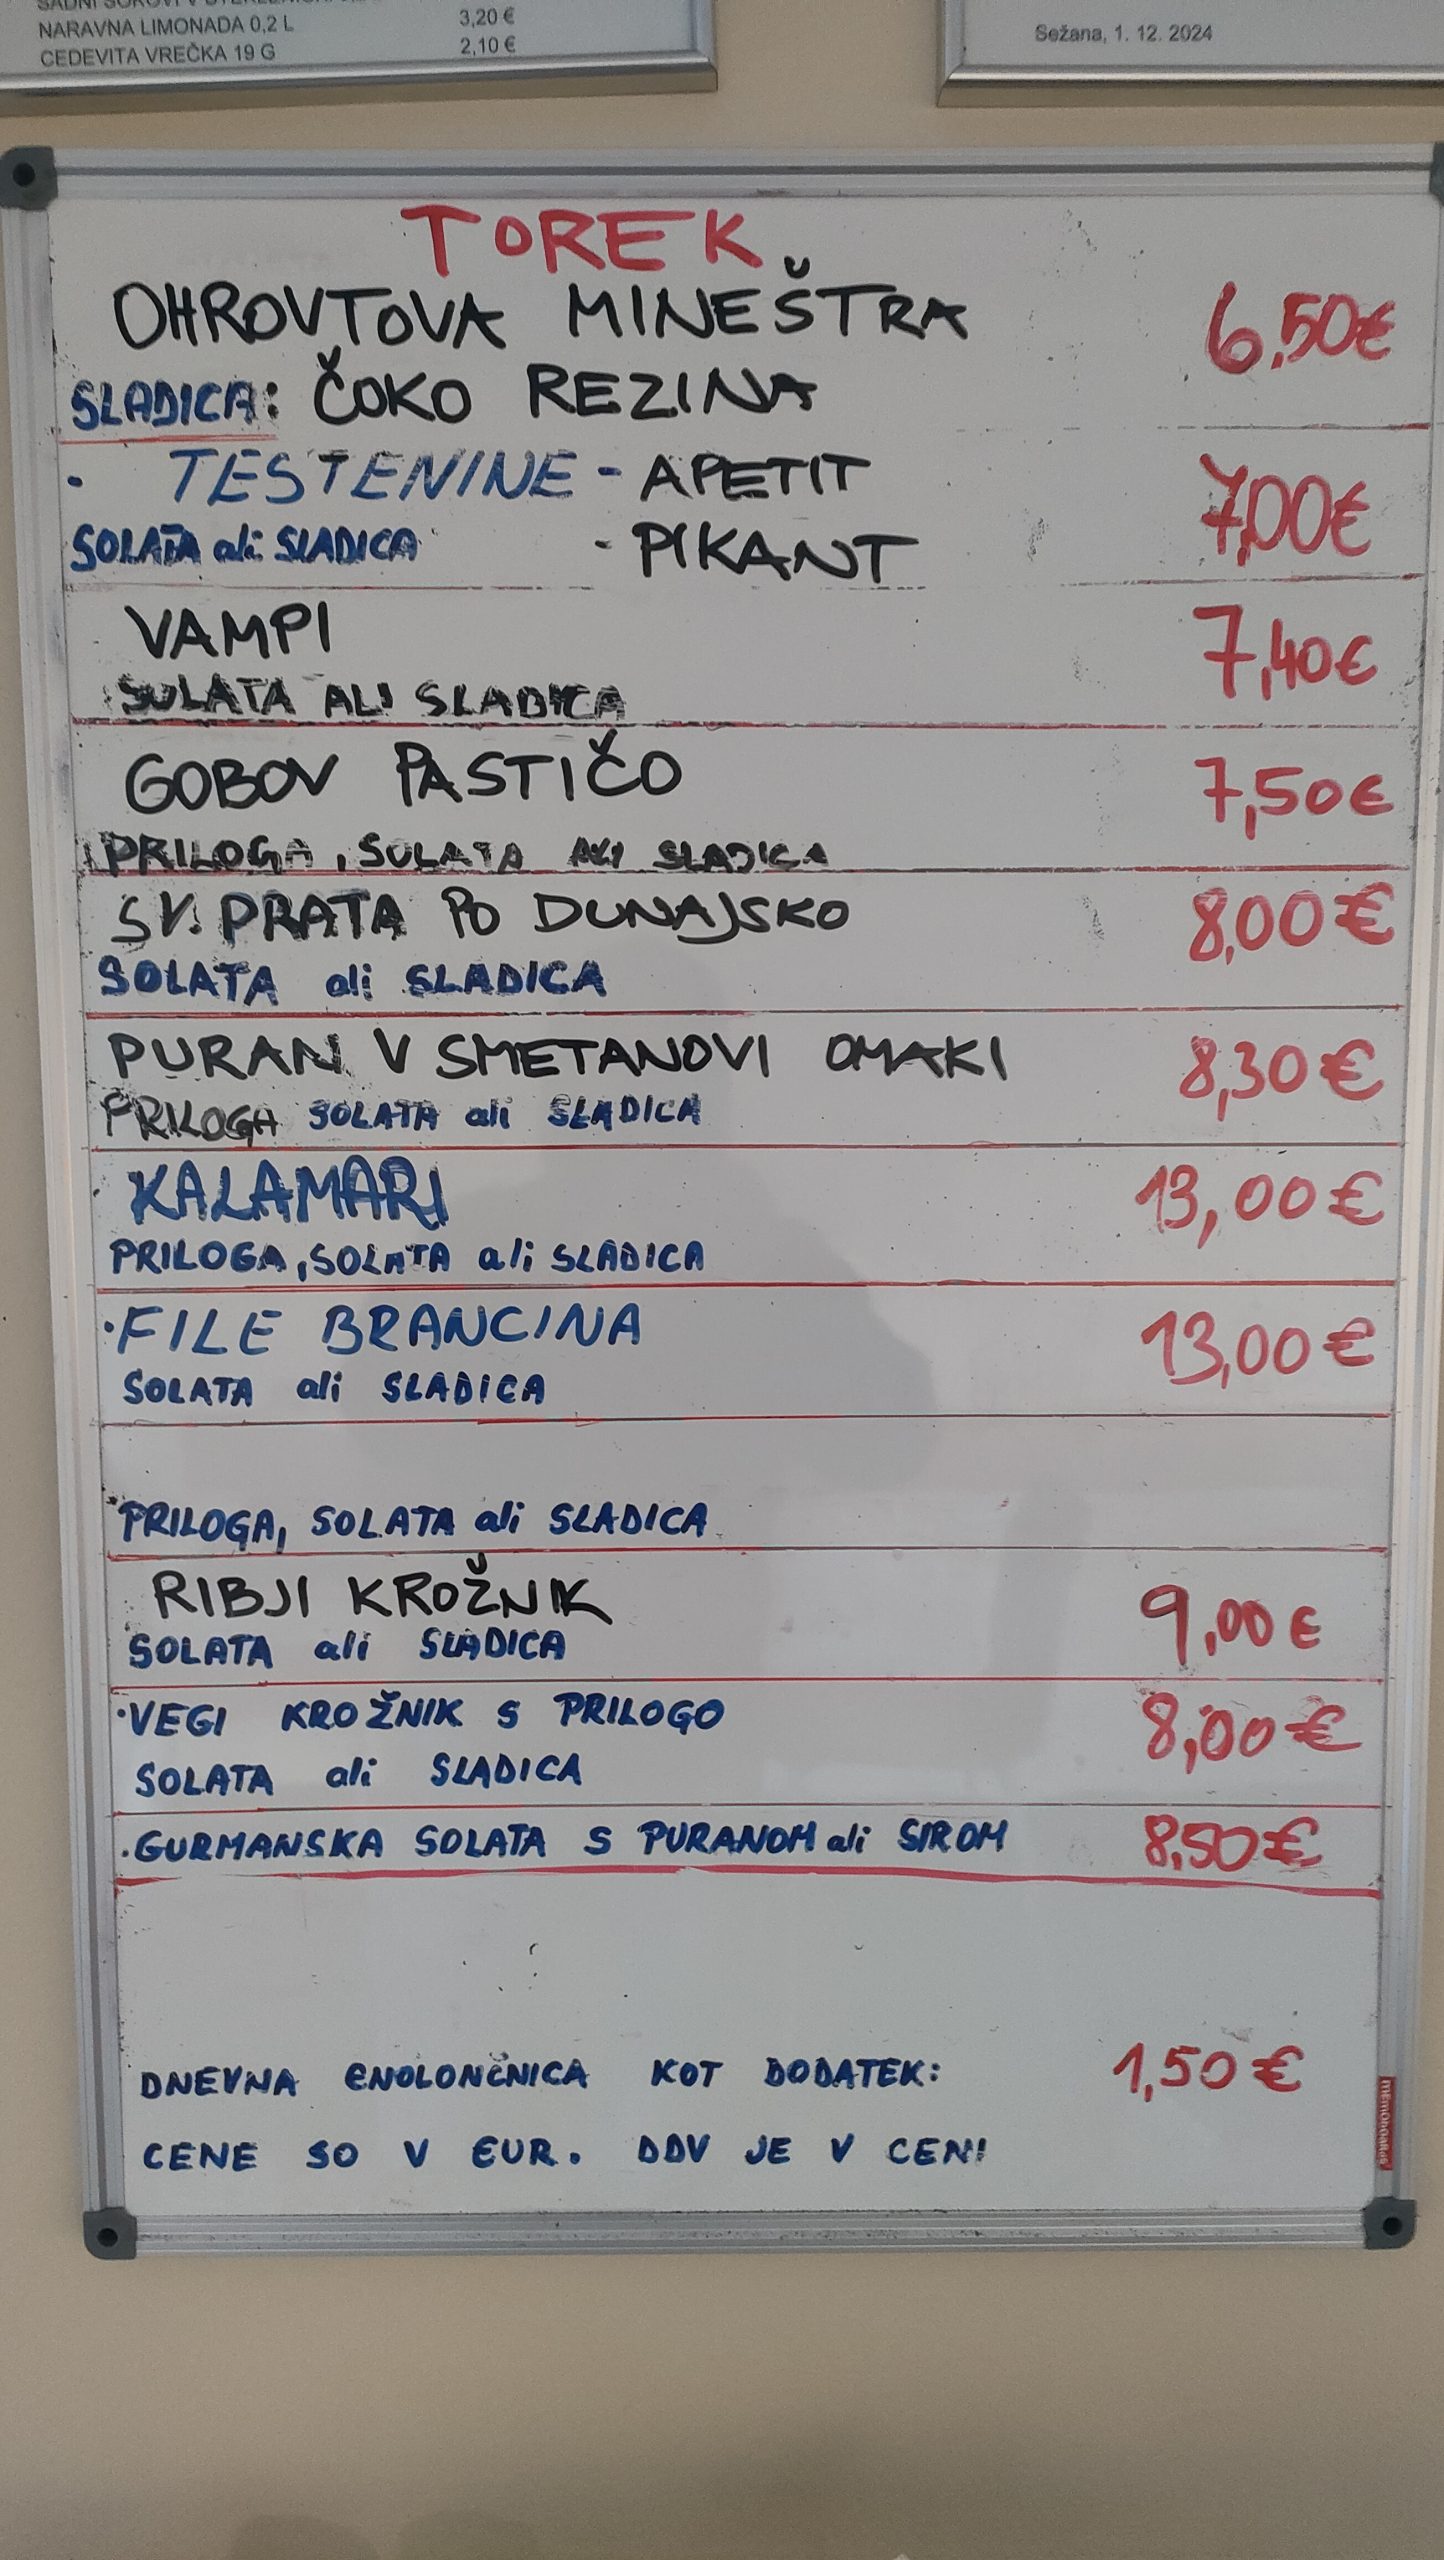 NARAVNA LIMONADA 0,2 L 3,20 €
CEDEVITA VREČKA 19 G 2,10 €
Sežana, 1. 12. 2024
TOREK
OHROVTOVA MINEŠTRA 6,50€
SLADICA: ČOKO REZINA
• TESTENINE - APETIT 7,00€
SOLATA ali SLADICA - PIKANT
VAMPI 7,40€
SOLATA ALI SLADICA
GOBOV PASTIČO 7,50€
PRILOGA, SOLATA ALI SLADICA
SV. PRATA PO DUNAJSKO 8,00€
SOLATA ali SLADICA
PURAN V SMETANOVI OMAKI 8,30€
PRILOGA SOLATA ali SLADICA
KALAMARI 13,00€
PRILOGA, SOLATA ali SLADICA
•FILE BRANCINA 13,00€
SOLATA ali SLADICA
PRILOGA, SOLATA ali SLADICA
RIBJI KROŽNIK 9,00€
SOLATA ali SLADICA
•VEGI KROŽNIK S PRILOGO 8,00€
SOLATA ali SLADICA
•GURMANSKA SOLATA S PURANOM ali SIROM 8,50€
DNEVNA ENOLONČNICA KOT DODATEK: 1,50€
CENE SO V EUR. DDV JE V CENI